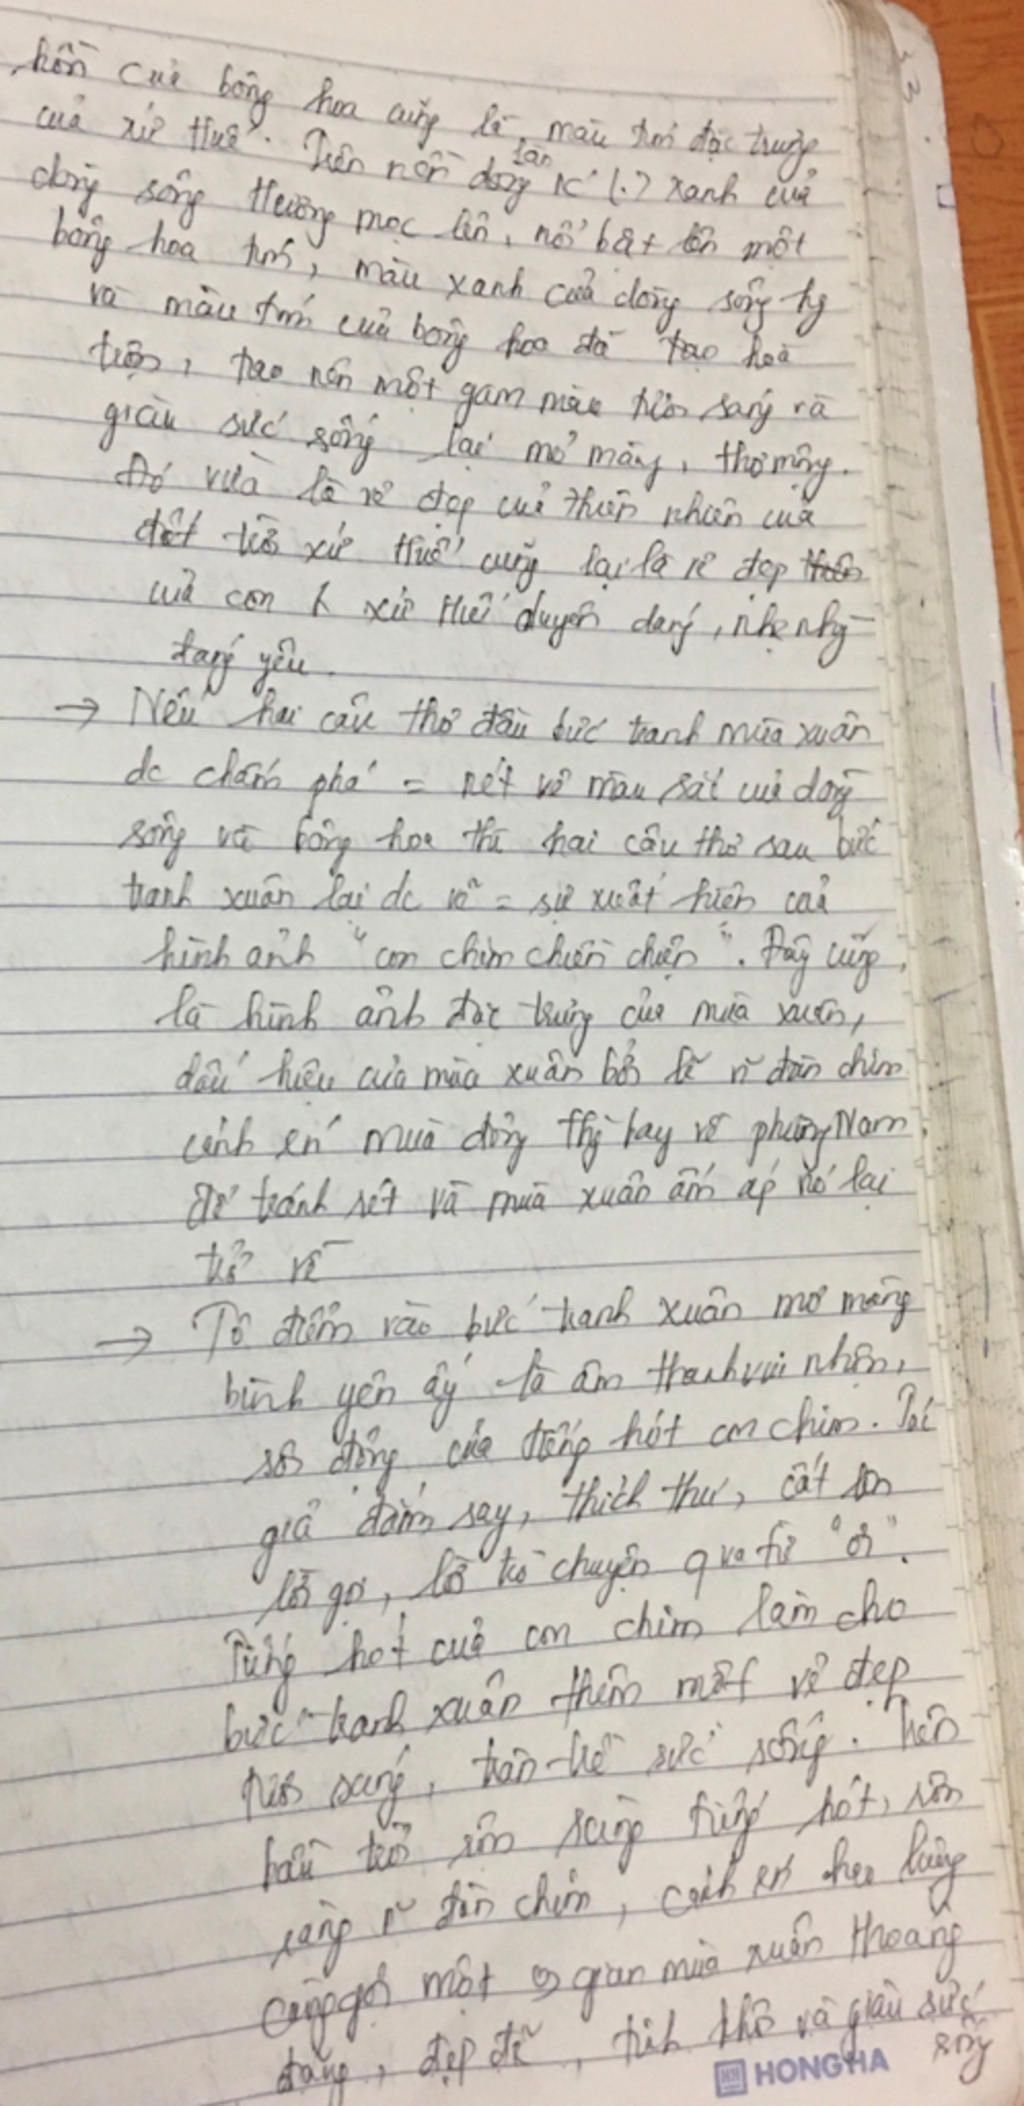 hồn của bông hoa cũng là màu tím đặc trưng
của xứ Huế. Trên nền dòng xanh của
dòng sông Hương mọc lên, nổi bật lên một
bông hoa tím, màu xanh của dòng sông
và màu tím của bông hoa đã tạo hoà
trộn, tạo nên một gam màu tươi sáng và
giàu sức sống lại mơ màng, thơ mộng.
Đó vừa là vẻ đẹp của thiên nhiên của
đất trời xứ Huế cũng lại là vẻ đẹp
của con xứ Huế duyên dáng, nhẹ nhàng
đáng yêu.
→ Nếu hai câu thơ đầu bức tranh mùa xuân
dc chấm phá = nét vẽ màu sắc của dòng
sông và bông hoa thì hai câu thơ sau bức
tranh xuân lại dc vẽ = sự xuất hiện của
hình ảnh "con chim chiền chiện". Đây cũng
là hình ảnh đặc trưng của mùa xuân,
dấu hiệu của mùa xuân bởi lẽ đàn chim
cánh én mùa đông bay về phương Nam
để tránh rét và mùa xuân ấm áp nó lại
trở về
→ Tô điểm vào bức tranh xuân mơ màng
bình yên ấy là âm thanh vui nhộn,
sôi động của tiếng hót con chim. Tác
giả đắm say, thích thú, cất lên
lời gọi, lời trò chuyện qua từ "ơi".
Tiếng hót của con chim làm cho
bức tranh xuân thêm một vẻ đẹp
tươi sáng, tràn trề sức sống. Trên
bầu trời rộn ràng tiếng hót, rộn
ràng đàn chim, cánh én chao lượng
càng gợi một gian mùa xuân thoáng
đãng, đẹp đẽ, và giàu sức
sống
HONG HA